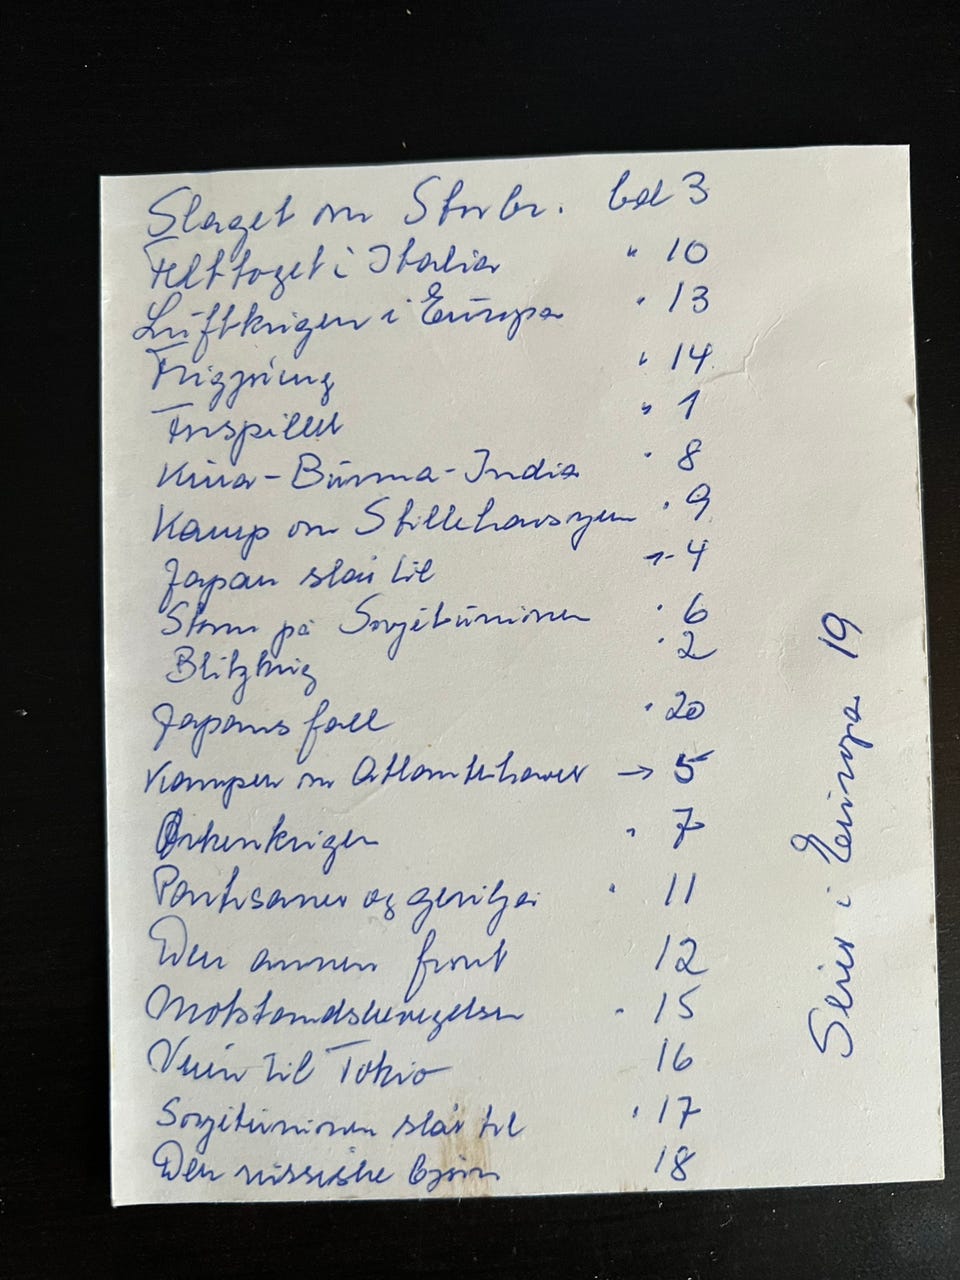 Slaget om Storbr. bd 3
Felttoget i Italia " 10
Luftkrigen i Europa " 13
Frigjøring " 14
Forspillet " 1
Kina-Burma-India " 8
Kamp om Stillehavsøyene " 9
Japan slår til -"- 4
Storm på Sovjetunionen " 6
Blitzkrieg " 2
Japans fall " 20
Kampen om Atlanterhavet → 5
Ørkenkrigen " 7
Partisaner og gerilja " 11
Den annen front 12
Motstandsbevegelsen " 15
Veien til Tokio 16
Sovjetunionen slår til " 17
Den russiske bjørn 18
Seier i Europa 19